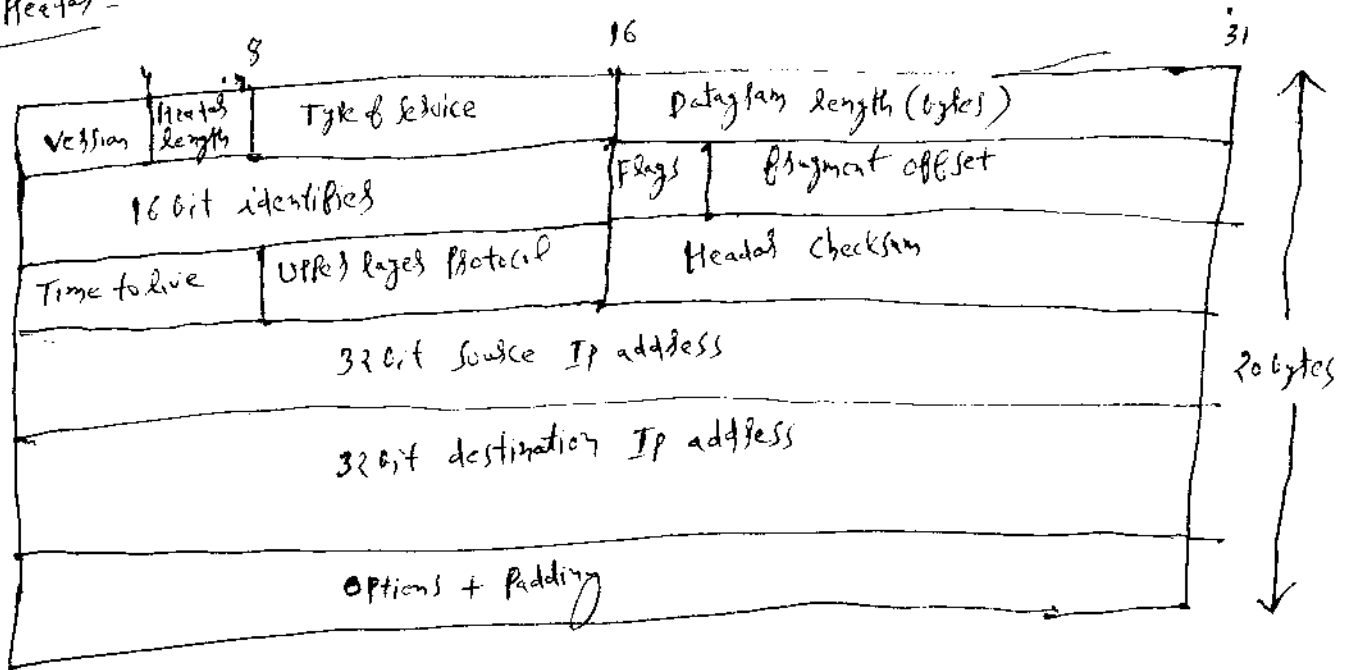 Header -
4 8 16 31
Version Header length Type of Service Datagram length (bytes)
16 bit identifier Flags fragment offset
Time to live Upper layer Protocol Header checksum
32 bit source Ip address
20 bytes
32 bit destination Ip address
Options + Padding